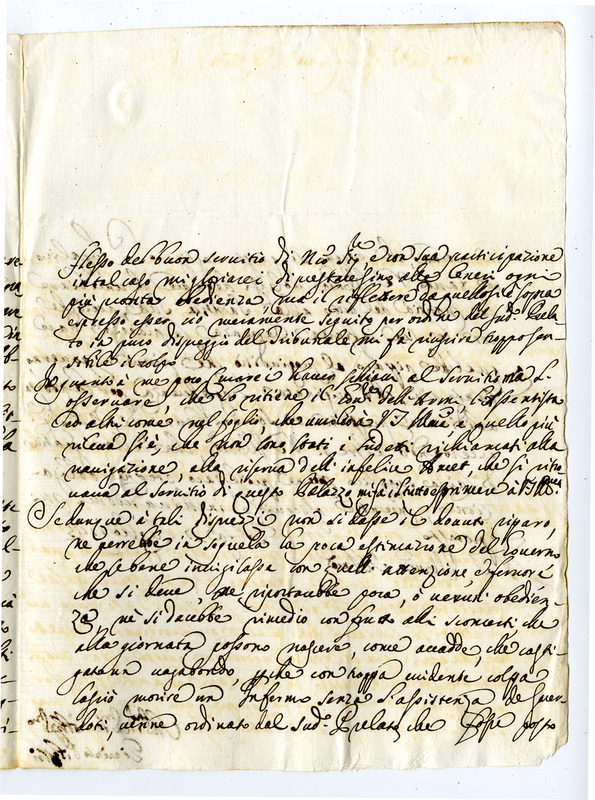 flesso del buon servitio di N.ro Sig.re e con sua participazione
in tal caso
più pronta obedienza ma il riflettere da quello si è sopra
espresso esser ciò meramente seguito per ordine del sud.o Prela
to in puro dispreggio del Tribunale mi fà riuscire troppo sen-
sibile il colpo
In quanto a me poco curarei havere schiavi al servitio ma l'
osservare, che lo ritiene il dell'Armi, l'Assentista
ed altri come nel foglio, che umilio a V.S. Ill.ma e quello più
rileva si è, che non sono stati i sudetti richiamati alla
navigazione, alla riserva dell'infelice che si ritro
vava al servitio di questo Palazzo, mi fà il tutto esprimere à V.S. Ill.ma
Se dunque à tali dispreggi non si dasse il dovuto riparo,
ne verrebbe in seguela la poca estimazione del Governo
che se bene invigilasse con quell'attenzione, e fervore
che si deve, ne riportarebbe poca, ò veruna obedien-
za, nè si darebbe rimedio con frutto alli sconcerti che
alla giornata possono nascere, come accadde, che
vagabondo, che con troppa evidente colpa
lasciò morire un Infermo senza l'assistenza de Sacer-
doti venne ordinato dal Sud.o Prelato che fosse posto